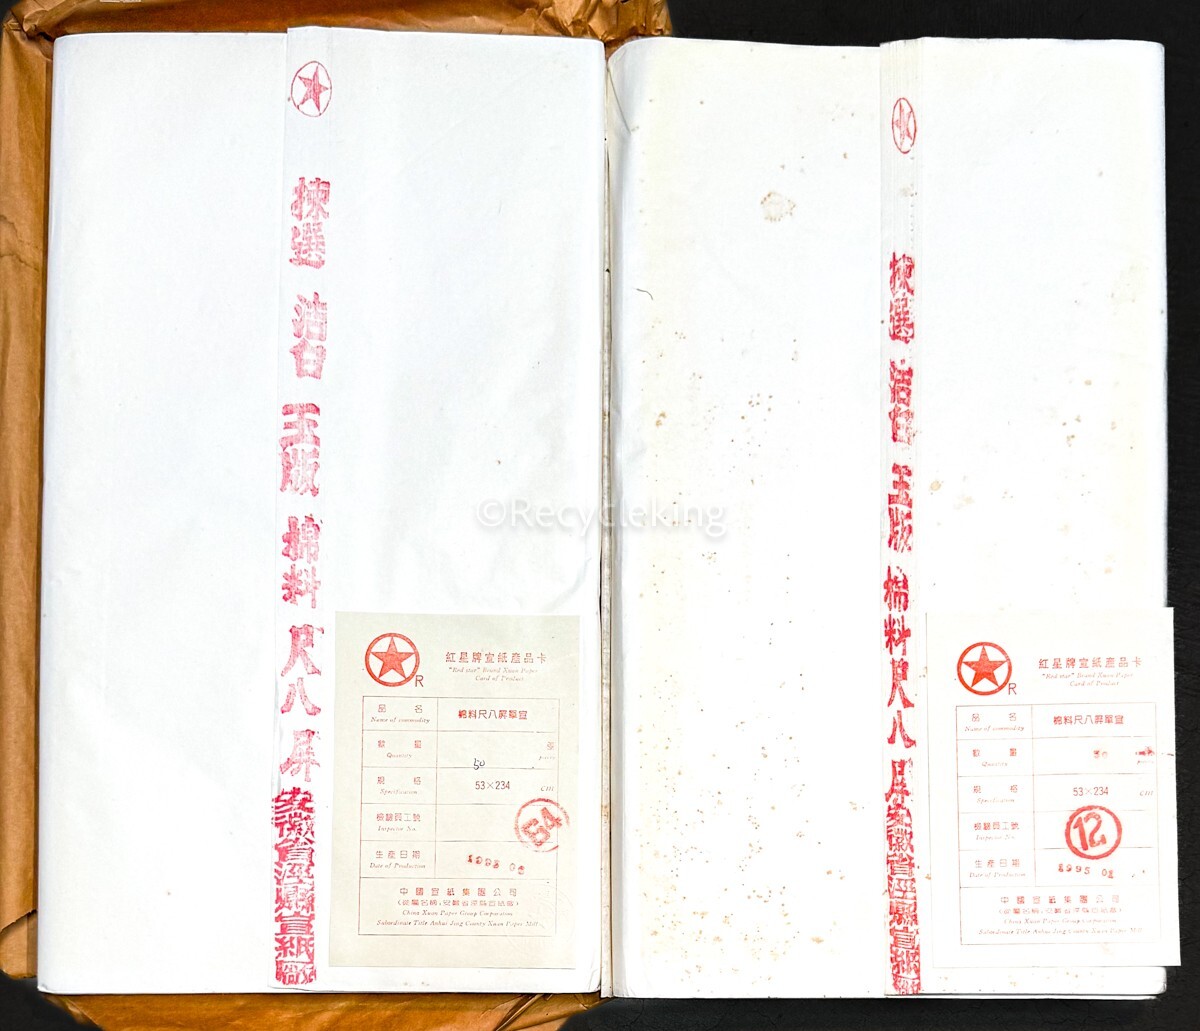 揀選 潔白 玉版 棉料 尺八 屏 安徽省涇縣宣紙廠
R
紅星牌宣紙產品卡
"Red star" Brand Xuan Paper
Card of Product
品名 棉料尺八屏單宣
Name of commodity
數量 50 張
Quantity pieces
規格 53×234
Specification cm
檢驗員工號 54
Inspector No.
生產日期
Date of Production
中國宣紙集團公司
China Xuan Paper Group Corporation
Subordinate Title Anhui Jing County Xuan Paper Mill
©Recycleking
揀選 潔白 玉版 棉料 尺八 屏 安徽省涇縣宣紙廠
R
紅星牌宣紙產品卡
"Red star" Brand Xuan Paper
Card of Product
品名 棉料尺八屏單宣
Name of commodity
數量
Quantity pieces
規格 53×234
Specification cm
檢驗員工號 12
Inspector No.
生產日期 1995
Date of Production
中國宣紙集團公司
China Xuan Paper Group Corporation
Subordinate Title Anhui Jing County Xuan Paper Mill